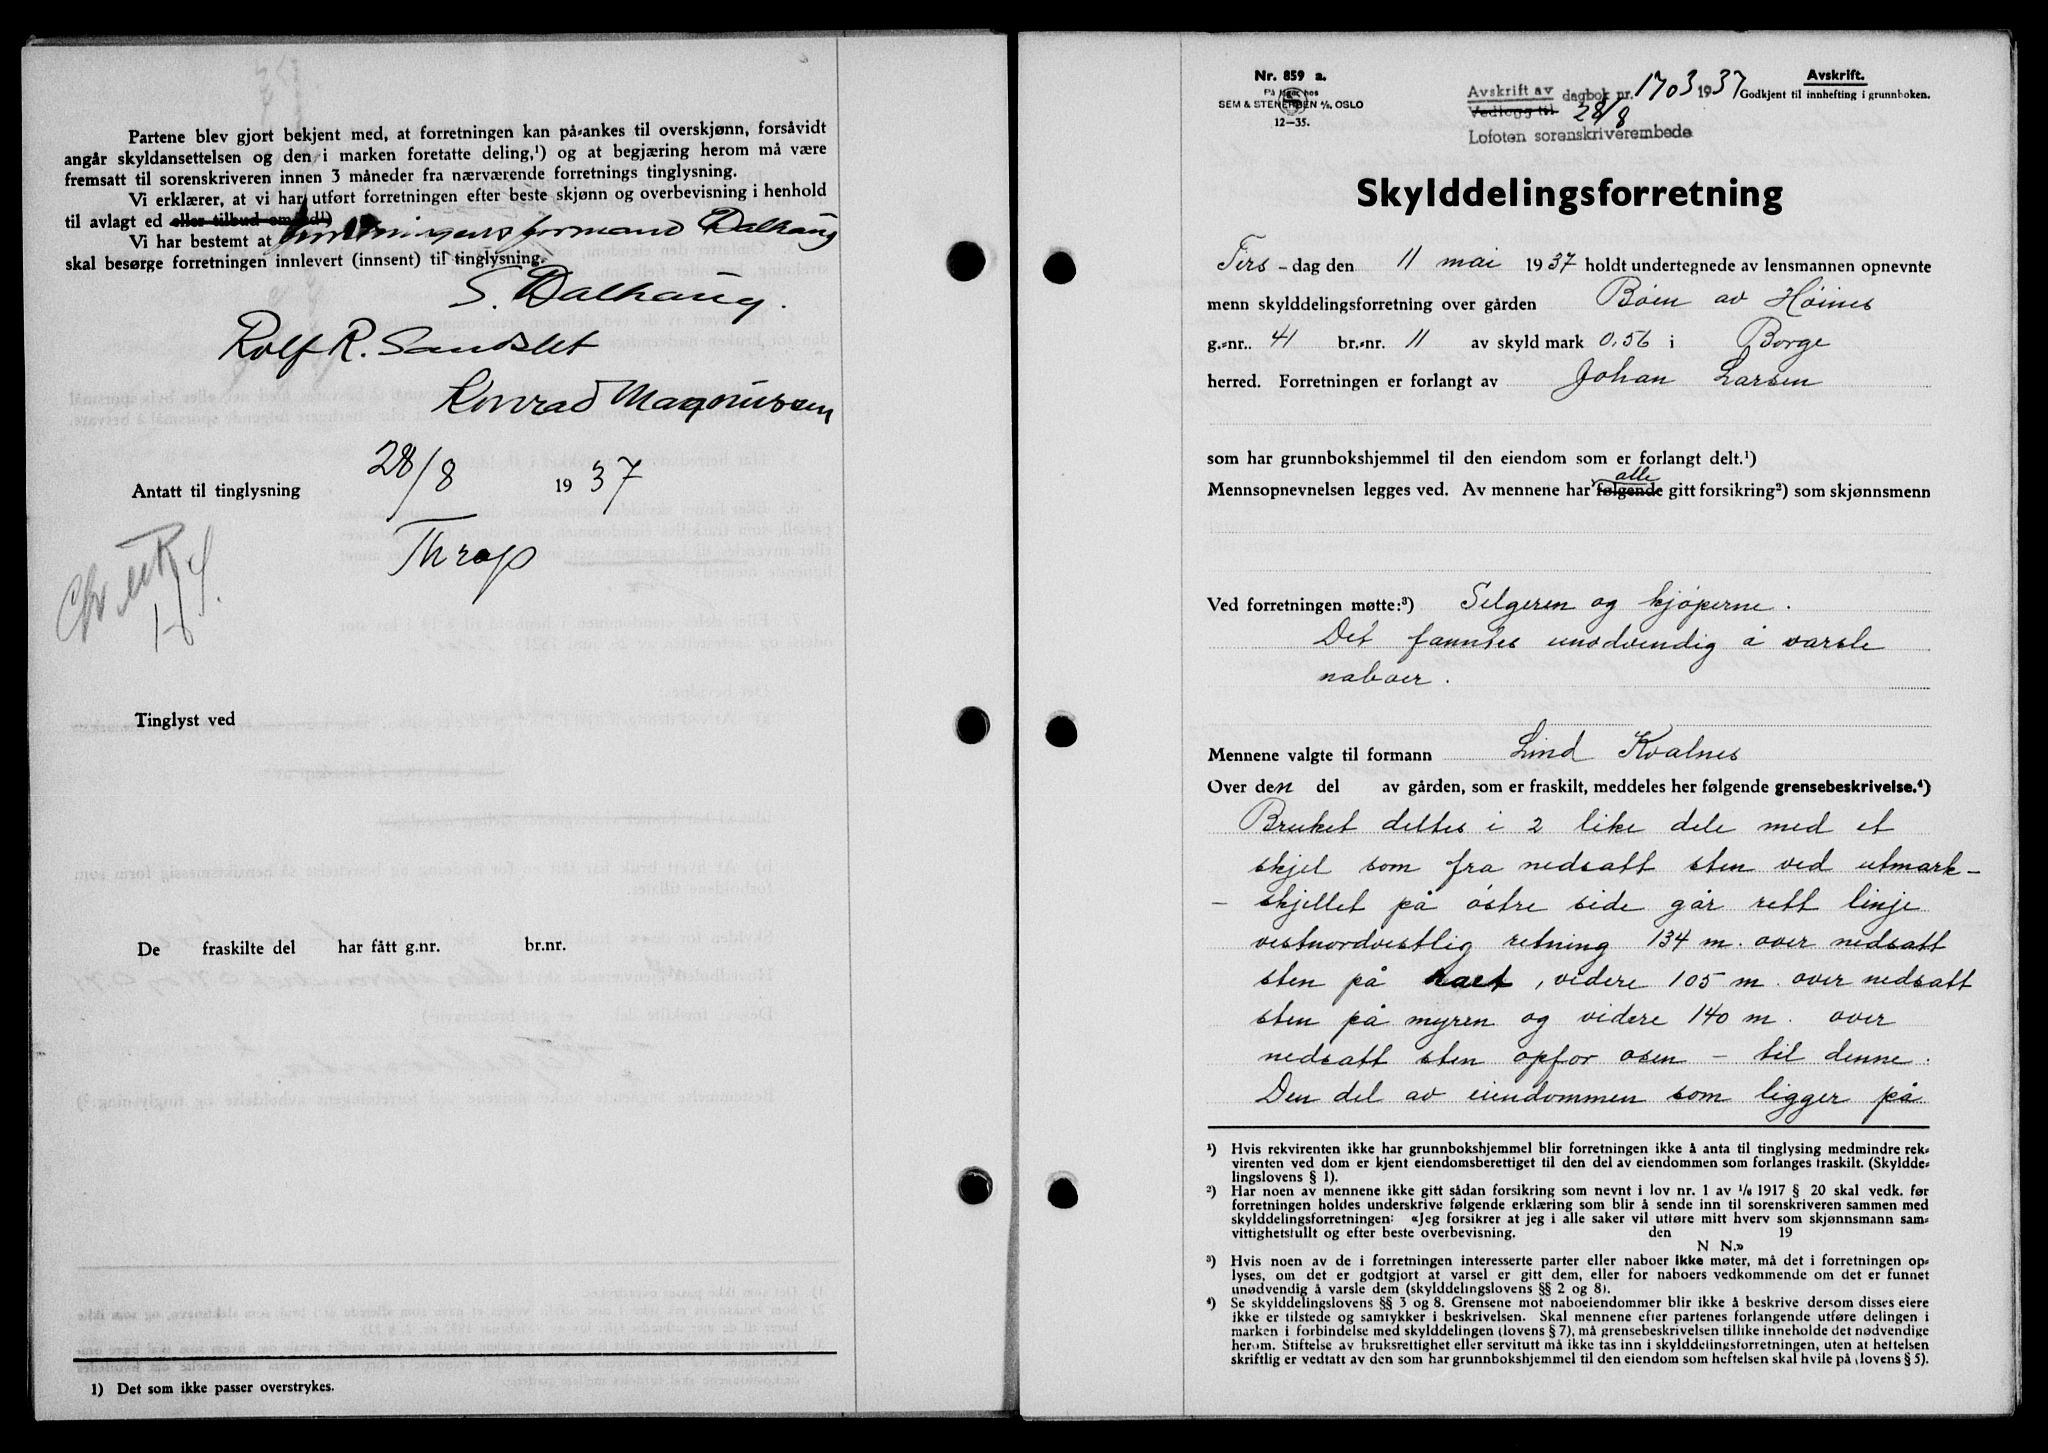 Partene blev gjort bekjent med, at forretningen kan på-ankes til overskjønn, forsåvidt
angår skyldansettelsen og den i marken foretatte deling,¹) og at begjæring herom må være
fremsatt til sorenskriveren innen 3 måneder fra nærværende forretnings tinglysning.
Vi erklærer, at vi har utført forretningen efter beste skjønn og overbevisning i henhold
til avlagt ed
Vi har bestemt at forretningens formand Dalhaug
skal besørge forretningen innlevert (innsent) til tinglysning.
S. Dalhaug.
Rolf R. Sandslet
Konrad Magnussen
Antatt til tinglysning 28/8 1937
Throp
Tinglyst ved
De fraskilte del har fått g.nr. br.nr.
1) Det som ikke passer overstrykes.
Nr. 859 a.
På lager hos
SEM & STENERSEN A/S, OSLO
12—35.
Avskrift av
Vedlegg til dagbok nr. 1703 1937
28/8
Lofoten sorenskriverembede
Avskrift.
Godkjent til innhefting i grunnboken.
Skylddelingsforretning
Tirs-dag den 11 mai 1937 holdt undertegnede av lensmannen opnevnte
menn skylddelingsforretning over gården Bøen av Høines
g.=nr. 41 br.=nr. 11 av skyld mark 0,56 i Borge
herred. Forretningen er forlangt av Johan Larsen
som har grunnbokshjemmel til den eiendom som er forlangt delt.¹)
Mennsopnevnelsen legges ved. Av mennene har følgende alle gitt forsikring²) som skjønnsmenn
Ved forretningen møtte:³) Selgeren og kjøperne.
Det fanntes unødvendig å varsle
naboer.
Mennene valgte til formann Lind Kvalnes
Over den del av gården, som er fraskilt, meddeles her følgende grensebeskrivelse.⁴)
Bruket deltes i 2 like dele med et
skjel som fra nedsatt sten ved utmark-
- skjellet på østre side går rett linje
vestnordvestlig retning 134 m. over nedsatt
sten på , videre 105 m. over nedsatt
sten på myren og videre 140 m. over
nedsatt sten opfor osen - til denne.
Den del av eiendommen som ligger på
¹) Hvis rekvirenten ikke har grunnbokshjemmel blir forretningen ikke å anta til tinglysing medmindre rek=
virenten ved dom er kjent eiendomsberettiget til den del av eiendommen som forlanges fraskilt. (Skyldde=
lingslovens § 1).
²) Har noen av mennene ikke gitt sådan forsikring som nevnt i lov nr. 1 av 1/6 1917 § 20 skal vedk. før
forretningen holdes underskrive følgende erklæring som blir å sende inn til sorenskriveren sammen med
skylddelingsforretningen: «Jeg forsikrer at jeg i alle saker vil utføre mitt hverv som skjønnsmann sam=
vittighetsfullt og efter beste overbevisning. den 19
N N.»
³) Hvis noen av de i forretningen interesserte parter eller naboer ikke møter, må det i forretningen op=
lyses, om det er godtgjort at varsel er gitt dem, eller for naboers vedkommende om det er funnet
unødvendig å varsle dem (skylddelingslovens §§ 2 og 8).
⁴) Se skylddelingslovens §§ 3 og 8. Grensene mot naboeiendommer blir ikke å beskrive dersom disses eiere
ikke er tilstede og samtykker i beskrivelsen. Skal mennene efter partenes forlangende utføre delingen i
marken i forbindelse med skylddelingen (lovens § 7), må grensebeskrivelsen tillike inneholde det nødvendige
herom. Stiftelse av bruksrettighet eller servitutt må ikke tas inn i skylddelingsforretningen, uten at heftelsen
skriftlig er vedtatt av den som har grunnbokshjemmel til den eiendom som heftelsen skal hvile på (lovens § 5).